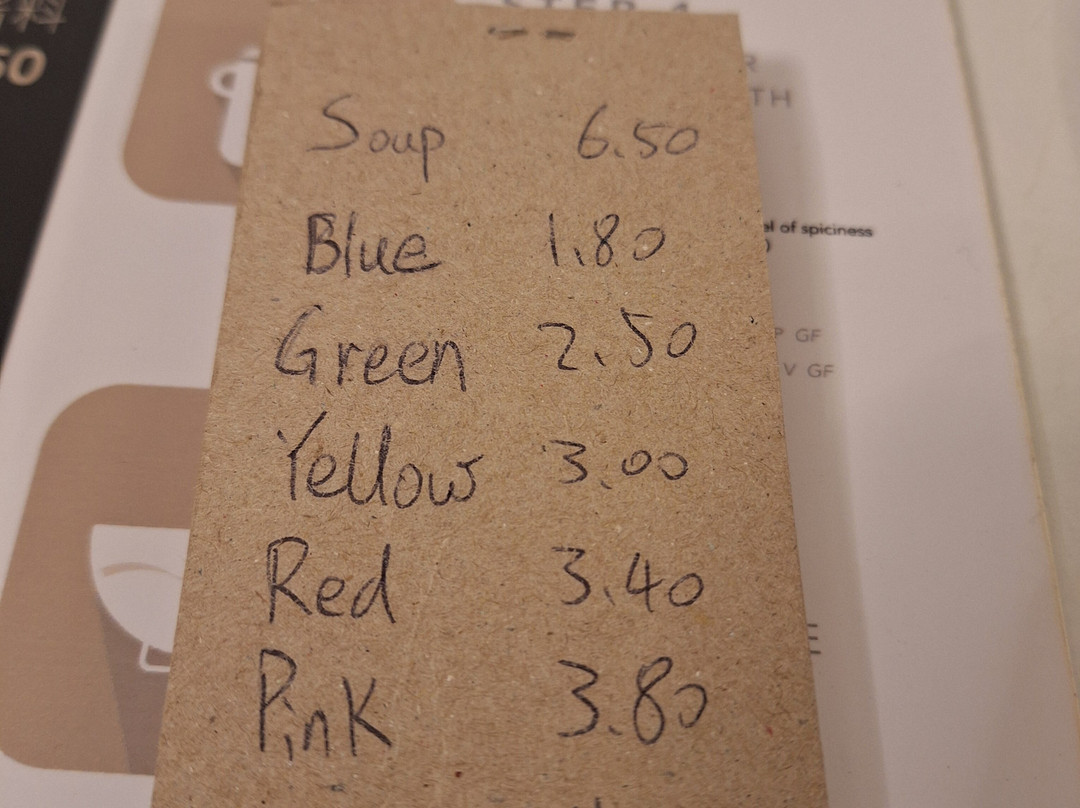 50
STEP 1
TH
Soup 6.50
el of spiciness
Blue 1.80
Green 2.50
P GF
V GF
Yellow 3.00
Red 3.40
E
Pink 3.80